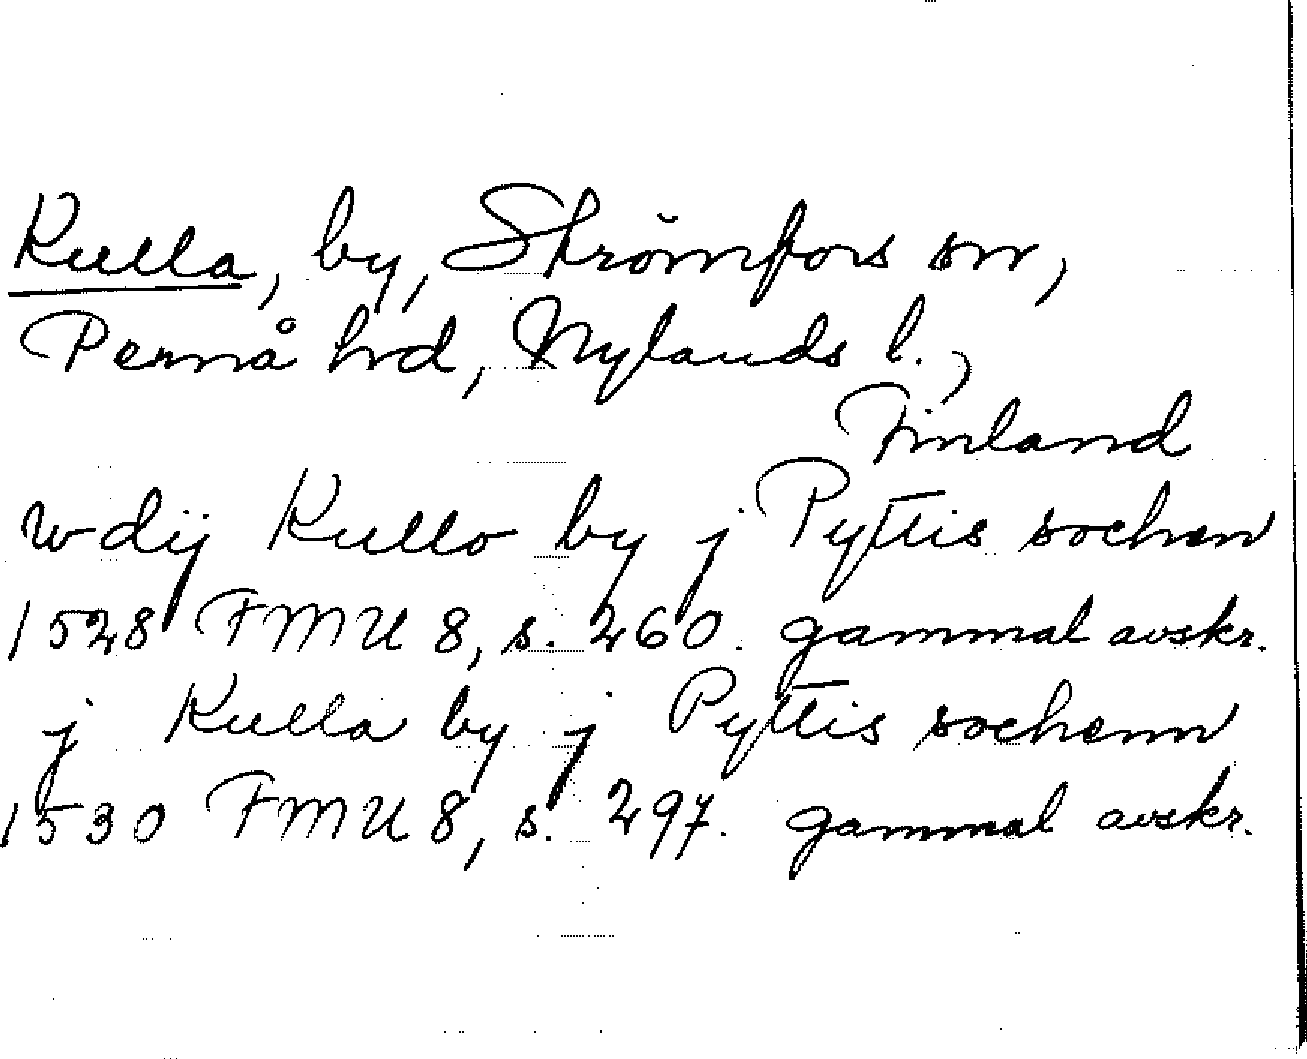 Kulla, by, Strömfors sn,
Pernå hrd, Nylands l.,
Finland
wdij Kullo by j Pyttis sochen
1528 FMU 8, s. 260. gammal avskr.
j Kulla by j Pyttis sochenn
1530 FMU 8, s. 297. gammal avskr.